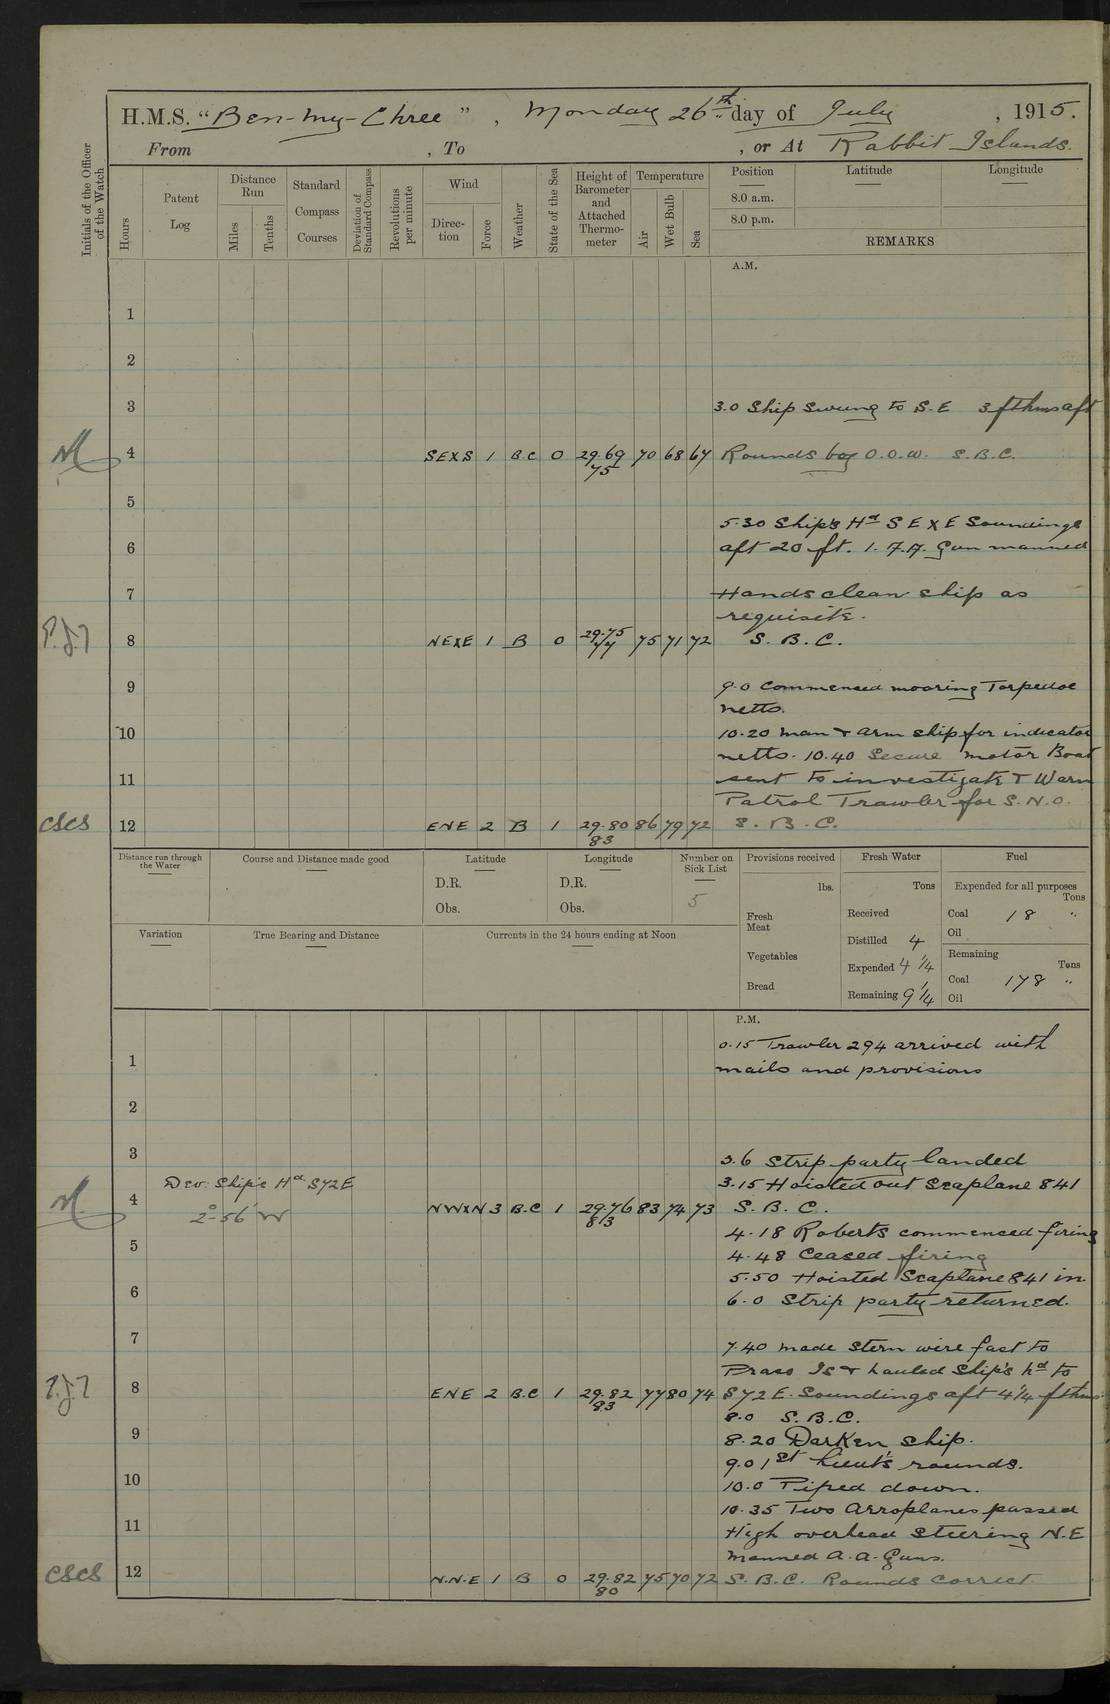 H.M.S. "Ben-my-Chree", Monday 26th day of July, 1915.
From , To , or At Rabbit Islands.
Initials of the Officer of the Watch
Hours
Patent Log
Distance Run
Miles
Tenths
Standard Compass Courses
Deviation of Standard Compass
Revolutions per minute
Wind
Direction
Force
Weather
State of the Sea
Height of Barometer and Attached Thermometer
Temperature
Air
Wet Bulb
Sea
Position
Latitude
Longitude
8.0 a.m.
8.0 p.m.
REMARKS
A.M.
1
2
3 3.0 Ship swung to S.E 3 fthms aft
4 SEXS 1 BC 0 29.69 75 70 68 67 Rounds by O.O.W. S.B.C.
5
5.30 Ship's Hd S E X E Soundings
6 aft 20 ft. 1. A.A. Gun manned
7 Hands clean ship as
requisite.
P.J.T 8 NEXE 1 B 0 29.75 77 75 71 72 S.B.C.
9 9.0 Commenced mooring Torpedoe
netts.
10 10.20 man & arm ship for indicator
netts. 10.40 Secure Motor Boat
11 sent to investigate & Warn
Patrol Trawler for S.N.O.
CSCS 12 ENE 2 B 1 29.80 83 86 79 72 S.B.C.
Distance run through the Water
Course and Distance made good
Latitude
D.R.
Obs.
Longitude
D.R.
Obs.
Number on Sick List
5
Provisions received
lbs.
Fresh Meat
Vegetables
Bread
Fresh Water
Tons
Received
Distilled 4
Expended 4 1/4
Remaining 9 1/4
Fuel
Expended for all purposes
Tons
Coal 18 "
Oil
Remaining
Tons
Coal 178 "
Oil
Variation
True Bearing and Distance
Currents in the 24 hours ending at Noon
P.M.
0.15 Trawler 294 arrived with
1 mails and provisions
2
3 3.6 Strip party landed
Dev: Ship's Hd S72E 3.15 Hoisted out Seaplane 841
4 2°-56' W NWXN 3 B.C 1 29.76 83 83 74 73 S.B.C.
4.18 Roberts commenced firing
5 4.48 Ceased firing
5.50 Hoisted Seaplane 841 in.
6 6.0 Strip party returned.
7 7.40 made stern wire fast to
Praso Is & hauled Ship's hd to
P.J.T 8 ENE 2 B.C 1 29.82 83 77 80 74 S72E. Soundings aft 4 1/4 fthms
8.0 S.B.C.
9 8.20 Darken ship.
9.0 1st Lieut's rounds.
10 10.0 Piped down.
10.35 Two Aeroplanes passed
11 High overhead Steering N.E
Manned A.A. Guns.
CSCS 12 N.N.E 1 B 0 29.82 80 75 70 72 S.B.C. Rounds Correct